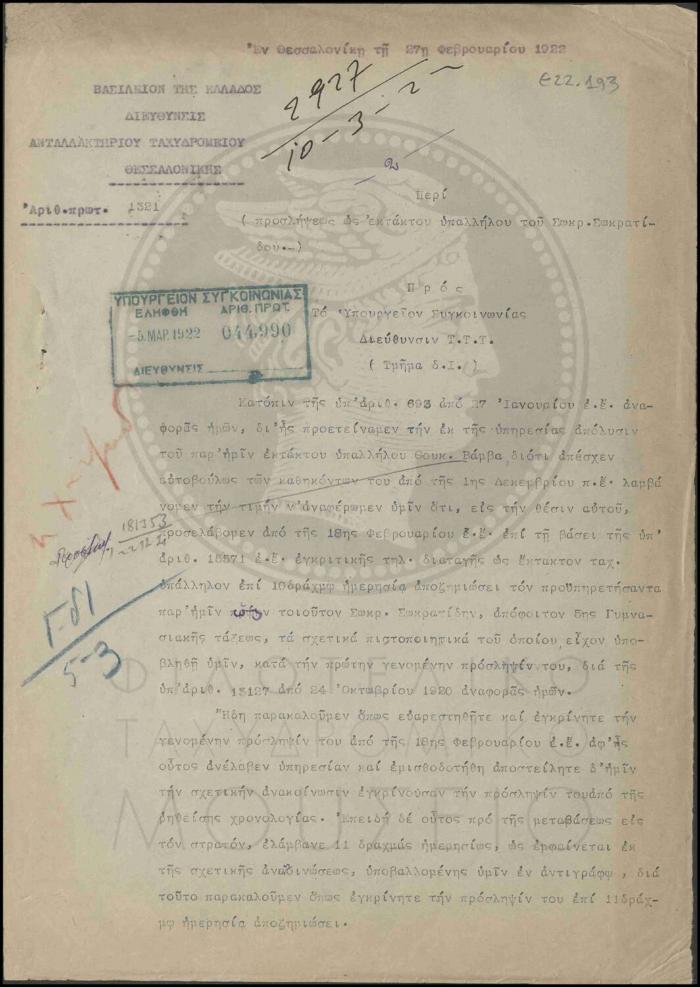 Ἐν Θεσσαλονίκῃ τῇ 27ῃ Φεβρουαρίου 1922
ε22.193
2927
10-3-2-
2
ΒΑΣΙΛΕΙΟΝ ΤΗΣ ΕΛΛΑΔΟΣ
ΔΙΕΥΘΥΝΣΙΣ
ΑΝΤΑΛΛΑΚΤΗΡΙΟΥ ΤΑΧΥΔΡΟΜΕΙΟΥ
ΘΕΣΣΑΛΟΝΙΚΗΣ
Ἀριθ.πρωτ. 1321
Περί
( προσλήψεως ὡς ἐκτάκτου ὑπαλλήλου τοῦ Σωκρ.Σωκρατί-
δου.-)
ΥΠΟΥΡΓΕΙΟΝ ΣΥΓΚΟΙΝΩΝΙΑΣ
ΕΛΗΦΘΗ ΑΡΙΘ. ΠΡΩΤ.
-5.ΜΑΡ.1922 044990
ΔΙΕΥΘΥΝΣΙΣ
Πρός
Τό Ὑπουργεῖον Συγκοινωνίας
Διεύθυνσιν Τ.Τ.Τ.
( Τμῆμα δ.Ι.)
Κατόπιν τῆς ὑπ'ἀριθ. 693 ἀπό 27 Ἰανουρίου ἐ.ἔ. ἀνα-
φορᾶς ἡμῶν, δι'ἧς προετείναμεν τήν ἐκ τῆς ὑπηρεσίας ἀπόλυσιν
τοῦ παρ'ἡμῖν ἐκτάκτου ὑπαλλήλου Θουκ. Βάμβα διότι ἀπέσχεν
αὐτοβούλως τῶν καθηκόντων του ἀπό τῆς 1ης Δεκεμβρίου π.ἔ. λαμβά
νομεν τήν τιμήν ν'ἀναφέρωμεν ὑμῖν ὅτι, εἰς τήν θέσιν αὐτοῦ,
προσελάβομεν ἀπό τῆς 18ης Φεβρουαρίου ἐ.ἔ. ἐπί τῇ βάσει τῆς ὑπ'
ἀριθ. 18571 ἐ.ἔ. ἐγκριτικῆς τηλ. διαταγῆς ὡς ἔκτακτον ταχ.
ὑπάλληλον ἐπί 10δράχμῳ ἡμερησίᾳ ἀποζημιώσει τόν προϋπηρετήσαντα
παρ'ἡμῖν τοιοῦτον Σωκρ. Σωκρατίδην, ἀπόφοιτον 5ης Γυμνα-
σιακῆς τάξεως, τά σχετικά πιστοποιητικά τοῦ ὁποίου εἶχον ὑπο-
βληθῆ ὑμῖν, κατά τήν πρώτην γενομένην πρόσληψίν του, διά τῆς
ὑπ'ἀριθ. 13127 ἀπό 24 Ὀκτωβρίου 1920 ἀναφορᾶς ἡμῶν.
Ἤδη παρακαλοῦμεν ὅπως εὐαρεστηθῆτε καί ἐγκρίνητε τήν
γενομένην πρόσληψίν του ἀπό τῆς 18ης Φεβρουαρίου ἐ.ἔ. ἀφ'ἧς
οὗτος ἀνέλαβεν ὑπηρεσίαν καί ἐμισθοδοτήθη ἀποστείλητε δ'ἡμῖν
τήν σχετικήν ἀνακοίνωσιν ἐγκρίνουσαν τήν πρόσληψίν τουἀπό τῆς
ῥηθείσης χρονολογίας. Ἐπειδή δέ οὗτος πρό τῆς μεταβάσεως εἰς
τόν στρατόν, ἐλάμβανε 11 δραχμάς ἡμερησίως, ὡς ἐμφαίνεται ἐκ
τῆς σχετικῆς ἀνακοινώσεως, ὑποβαλλομένης ὑμῖν ἐν ἀντιγράφῳ, διά
τοῦτο παρακαλοῦμεν ὅπως ἐγκρίνητε τήν πρόσληψίν του ἐπί 11δράχ-
μῳ ἡμερησίᾳ ἀποζημιώσει.
181353
Γ-δΙ
5-3
ΦΙΛΟΤΕΛΙΚΟ
ΤΑΧΥΔΡΟΜΙΚΟ
ΜΟΥΣΕΙΟ